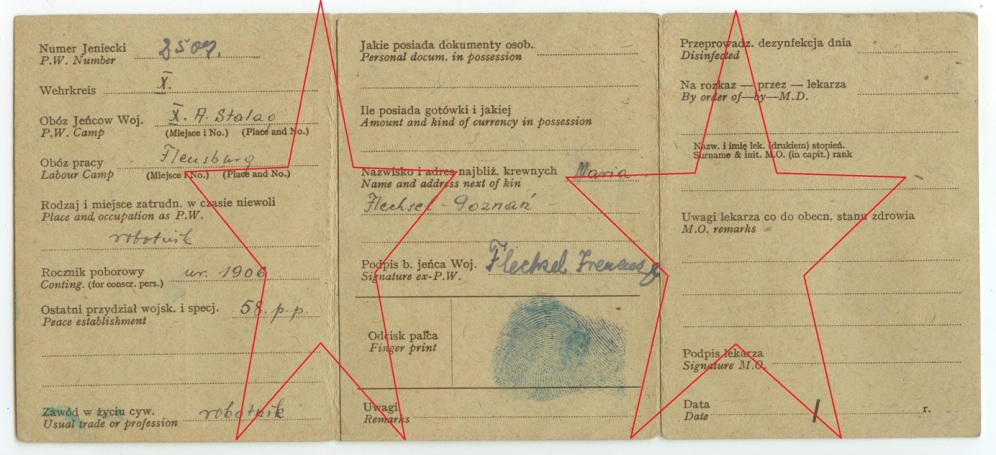 Numer Jeniecki 8509.
P.W. Number
Wehrkreis X.
Obóz Jeńcow Woj. X. A. Stalag
P.W. Camp (Miejsce i No.) (Place and No.)
Obóz pracy Flensburg
Labour Camp (Miejsce i No.) (Place and No.)
Rodzaj i miejsce zatrudn. w czasie niewoli
Place and occupation as P.W.
robotnik
Rocznik poborowy ur. 1906
Conting. (for conscr. pers.)
Ostatni przydział wojsk. i specj. 58. p.p.
Peace establishment
Zawód w życiu cyw. robotnik
Usual trade or profession
Jakie posiada dokumenty osob.
Personal docum. in possession
Ile posiada gotówki i jakiej
Amount and kind of currency in possession
Nazwisko i adres najbliż. krewnych Maria
Name and address next of kin
Flechsel - Poznań -
Podpis b. jeńca Woj. Flechsel Ireneusz
Signature ex-P.W.
Odcisk palca
Finger print
Uwagi
Remarks
Przeprowadz. dezynfekcja dnia
Disinfected
Na rozkaz — przez — lekarza
By order of—by—M.D.
Nazw. i imię lek. (drukiem) stopień.
Surname & init. M.O. (in capit.) rank
Uwagi lekarza co do obecn. stanu zdrowia
M.O. remarks
Podpis lekarza
Signature M.O.
Data / r.
Date